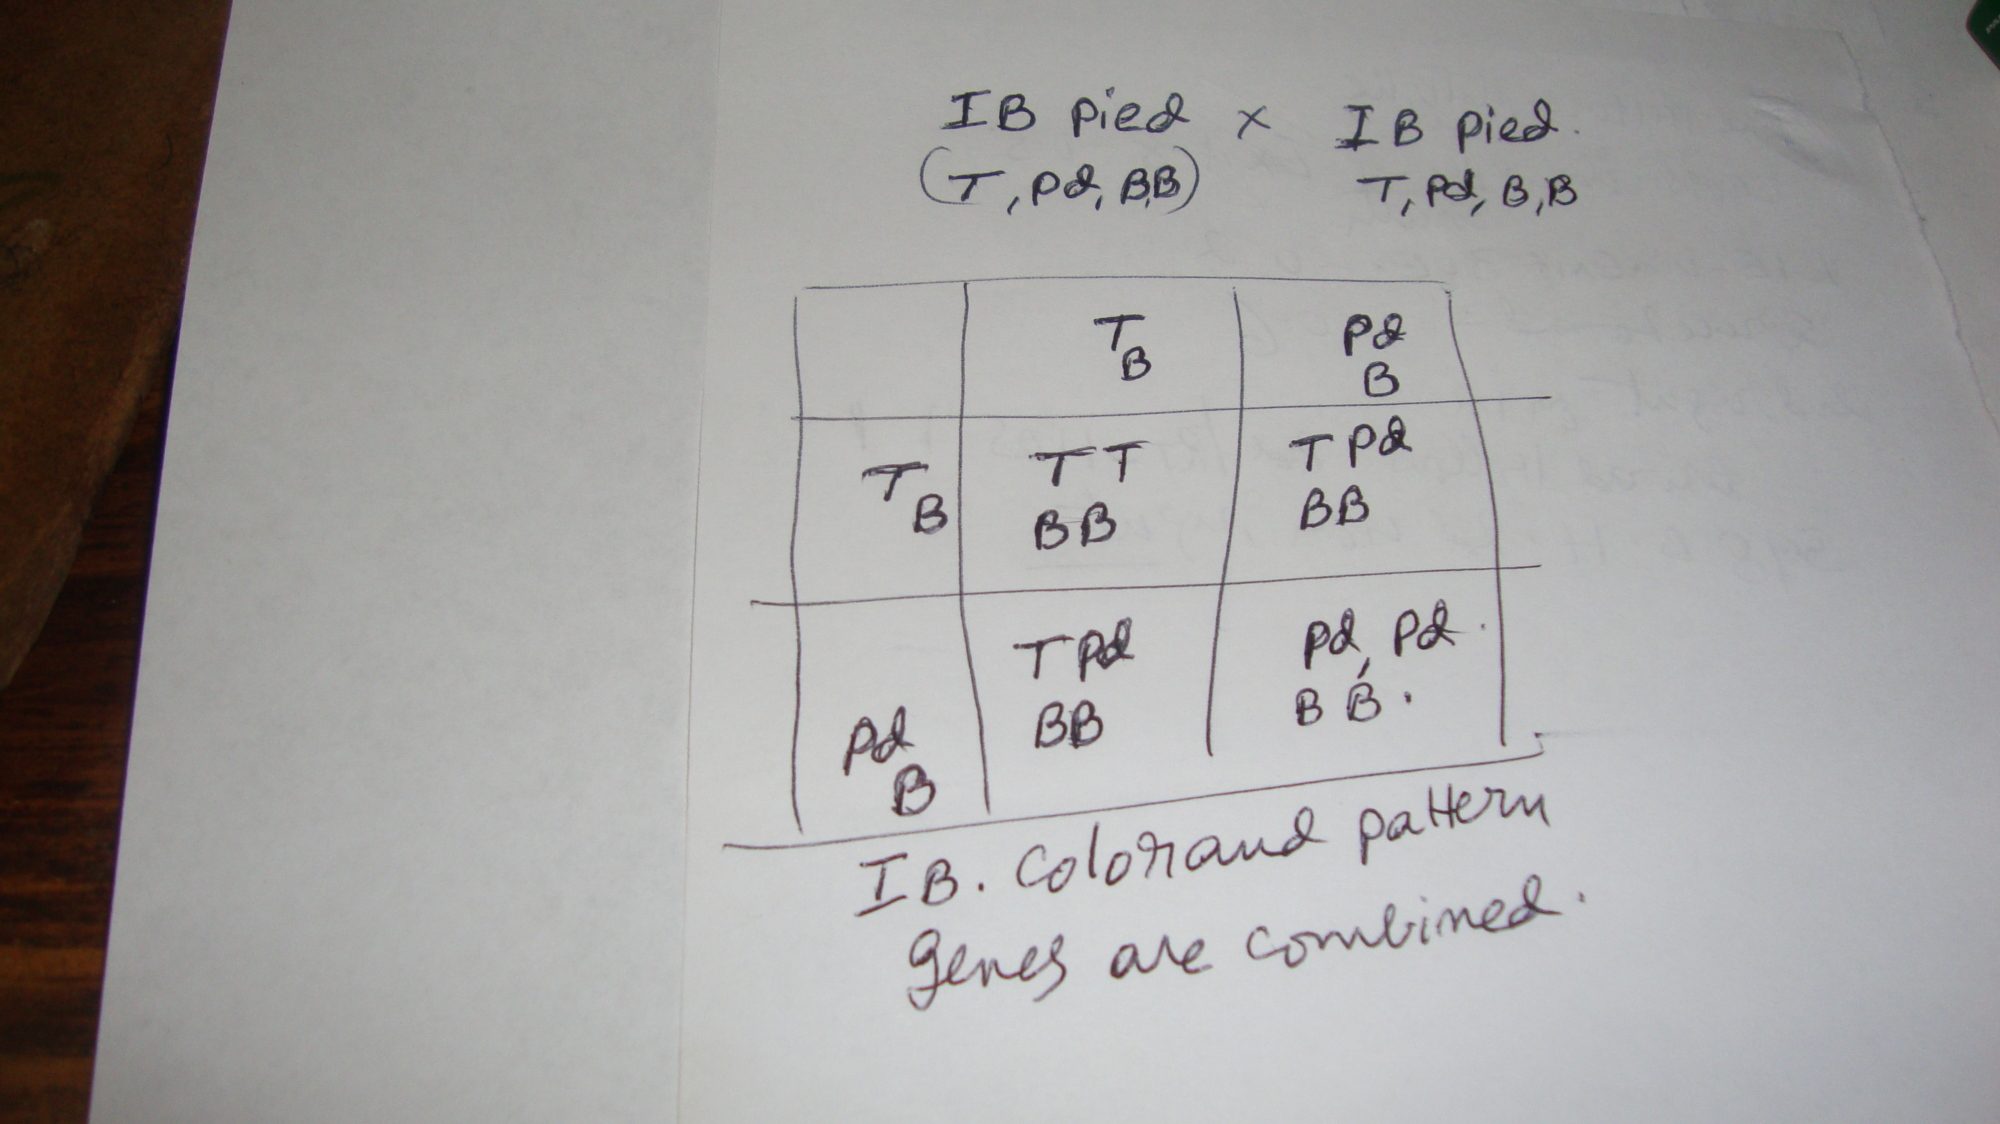 IB Pied × IB Pied.
(T, Pd, B,B) T, Pd, B,B
T Pd
B B
T T T T Pd
B BB BB
T Pd Pd, Pd.
BB B B.
Pd
B
IB. Color and pattern
genes are combined.